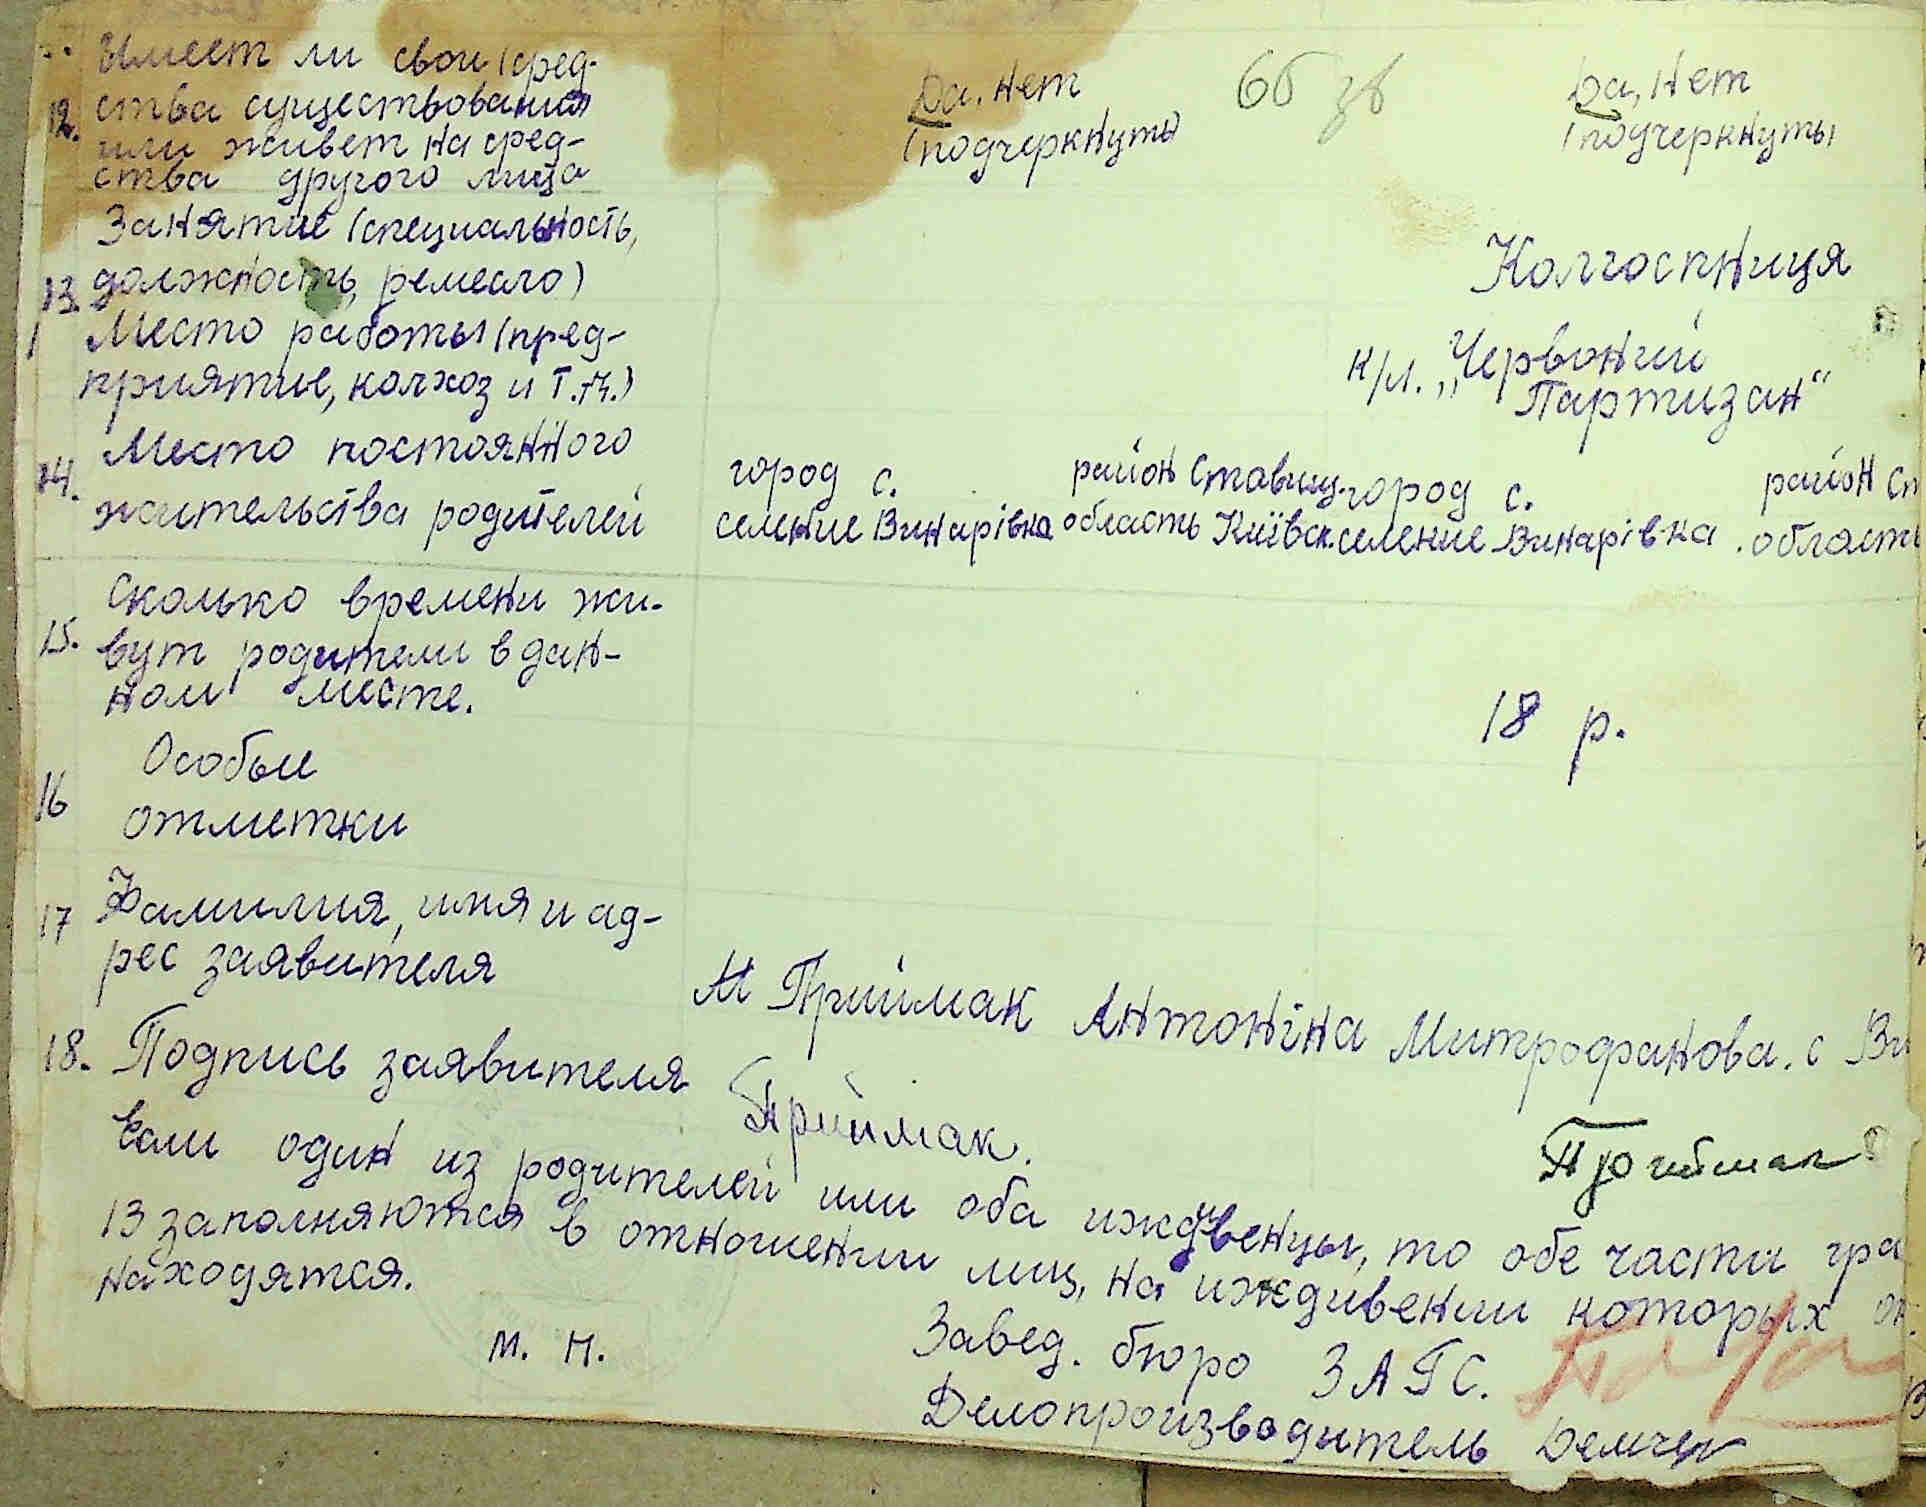 Имеет ли свои сред-
12. ства существования
или живет на сред-
ства другого лица
Да. Нет
(подчеркнуты
66 зв
Да, Нет
(подчеркнуты
Занятие (специальность,
13. должность, ремесло)
Колгоспниця
Место работы (пред-
приятие, колхоз и т.п.)
к/г. „Червоний
Партизан“
14. Место постоянного
жительства родителей
город с. район Ставищ. город с. район Ст
селение Винарівка область Київск. селение Винарівка область
Сколько времени жи-
15. вут родители в дан-
ном месте.
18 р.
16 Особые
отметки
17 Фамилия, имя и ад-
рес заявителя
М Приймак Антоніна Митрофанова. с Ви
18. Подпись заявителя
Приймак.
Приймак
Если один из родителей или оба иждивенцы, то обе части гра
13 заполняются в отношении лиц, на иждивении которых он
находятся.
м. п.
Завед. бюро ЗАГС.
Делопроизводитель Демчен